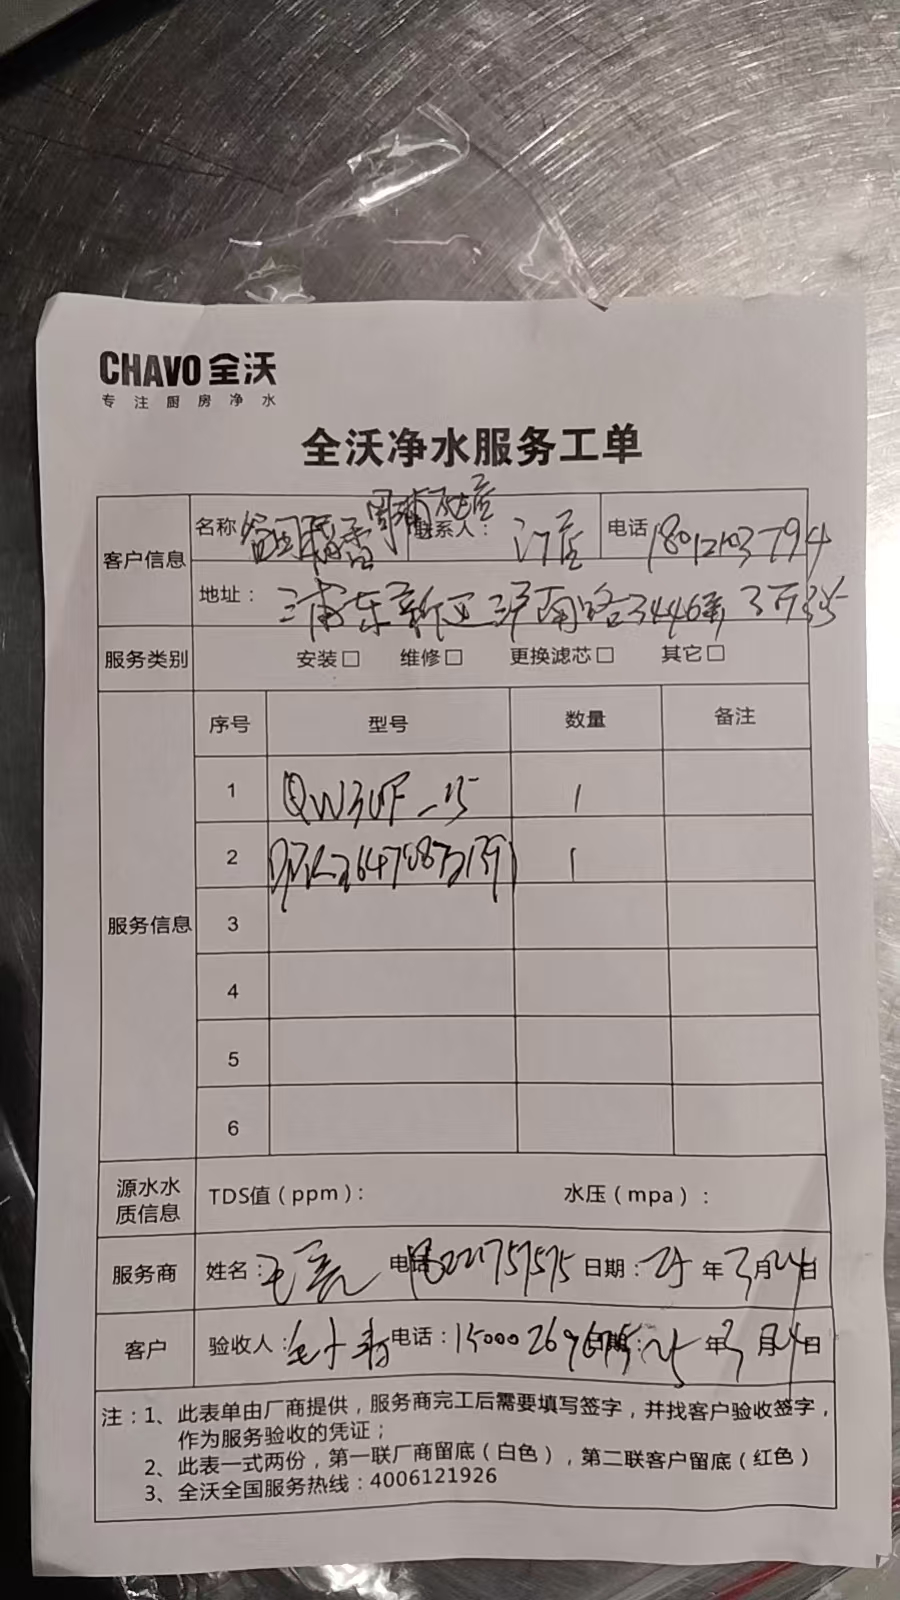 CHAVO 全沃
专注厨房净水
全沃净水服务工单
客户信息
名称 联系人： 门店 电话 18012103794
地址： 浦东新区沪南路3446弄
服务类别 安装□ 维修□ 更换滤芯□ 其它□
服务信息
序号 型号 数量 备注
1 QW3UF-15 1
2 1
3
4
5
6
源水水质信息
TDS值（ppm）： 水压（mpa）：
服务商 姓名： 电话 日期：25年3月24日
客户 验收人： 电话：15000269675 日期：25年3月24日
注：1、此表单由厂商提供，服务商完工后需要填写签字，并找客户验收签字，
作为服务验收的凭证；
2、此表一式两份，第一联厂商留底（白色），第二联客户留底（红色）
3、全沃全国服务热线：4006121926